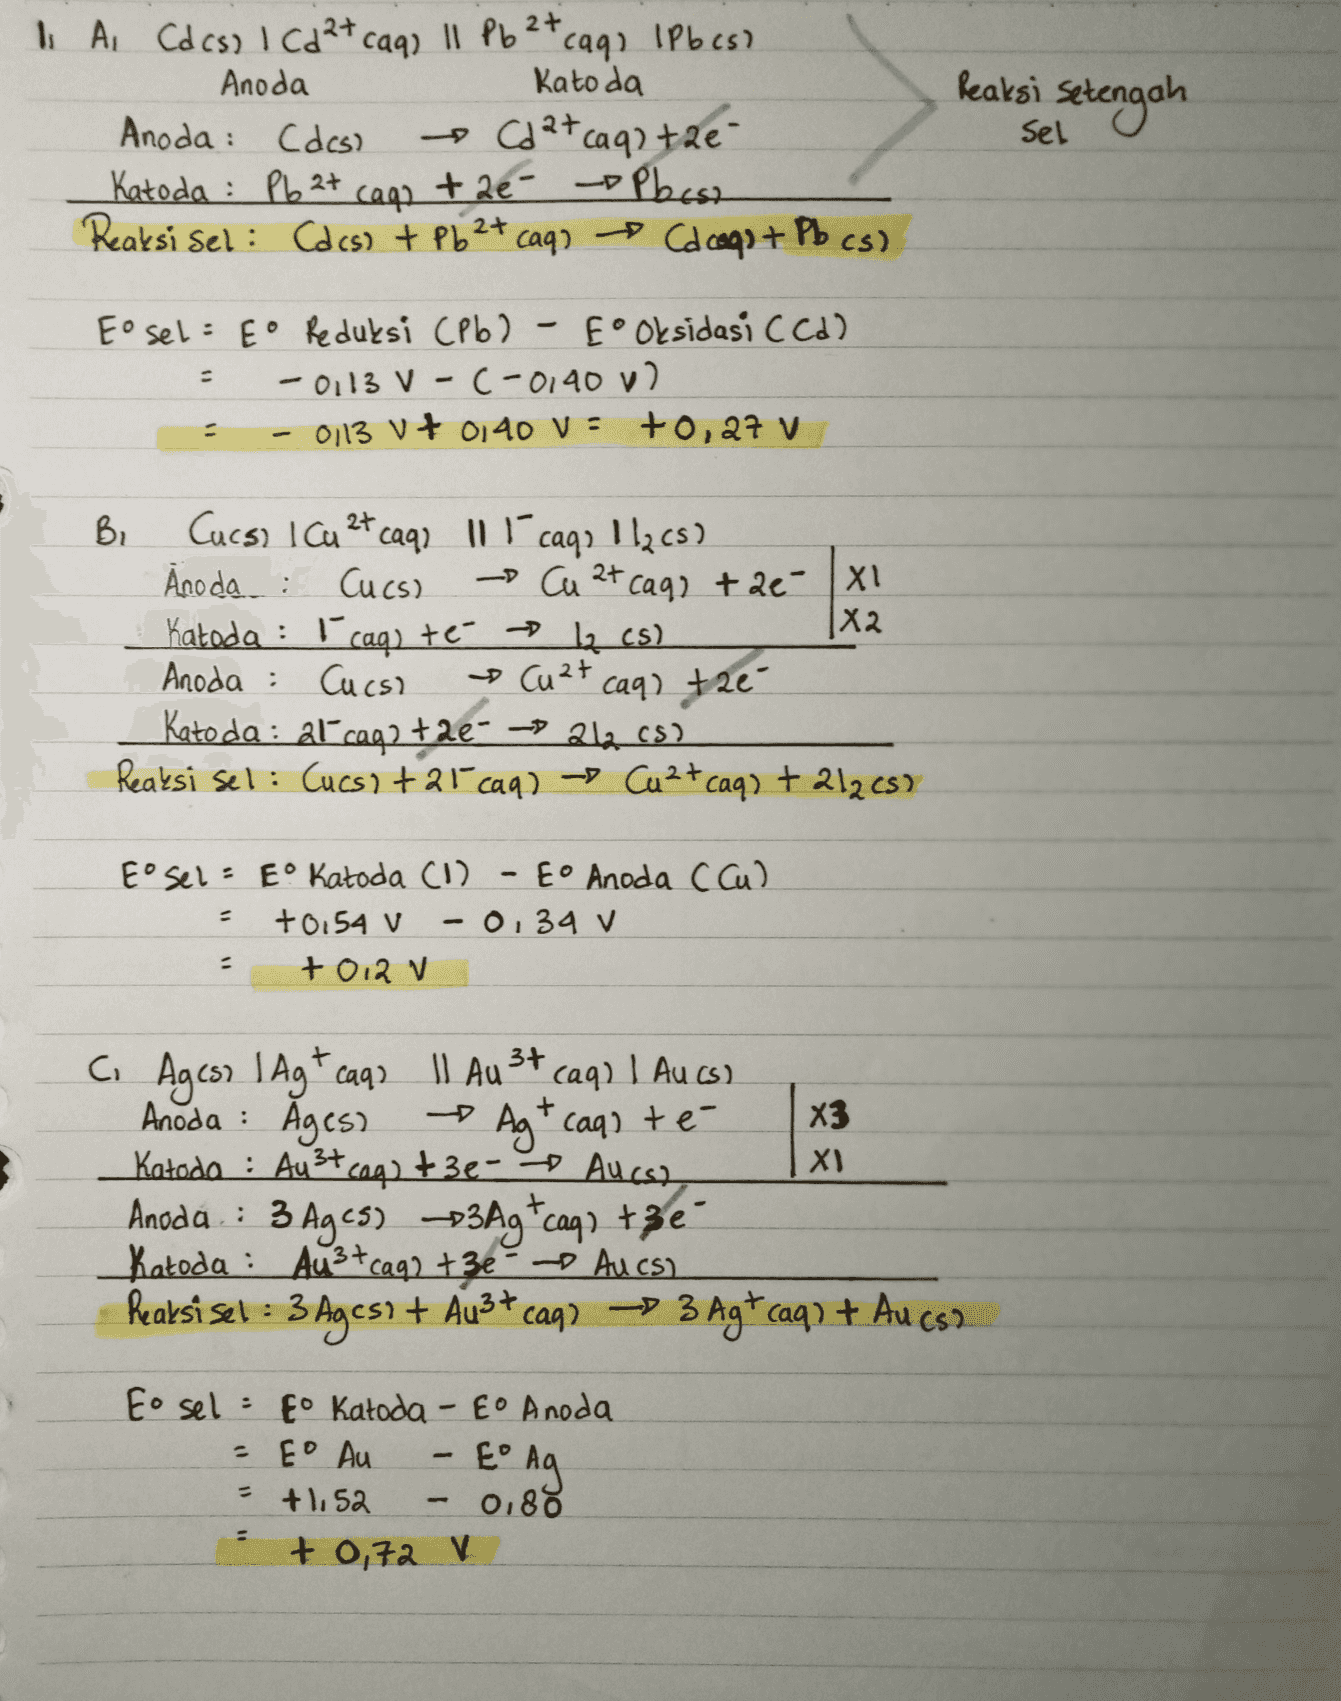 1, A, Cd(s) | Cd²⁺(aq) || Pb²⁺(aq) | Pb(s)
Anoda Katoda
Reaksi Setengah
Sel
Anoda : Cd(s) → Cd²⁺(aq) + 2e⁻
Katoda : Pb²⁺(aq) + 2e⁻ → Pb(s)
Reaksi Sel : Cd(s) + Pb²⁺(aq) → Cd(aq) + Pb(s)
E° sel = E° Reduksi (Pb) - E° Oksidasi (Cd)
= - 0,13 V - (-0,40 V)
= - 0,13 V + 0,40 V = +0,27 V
B, Cu(s) | Cu²⁺(aq) || I⁻(aq) | I₂(s)
Anoda : Cu(s) → Cu²⁺(aq) + 2e⁻ | X1
Katoda : I⁻(aq) + e⁻ → I₂(s) | X2
Anoda : Cu(s) → Cu²⁺(aq) + 2e⁻
Katoda : 2I⁻(aq) + 2e⁻ → 2I₂(s)
Reaksi sel : Cu(s) + 2I⁻(aq) → Cu²⁺(aq) + 2I₂(s)
E° sel = E° Katoda (I) - E° Anoda (Cu)
= +0,54 V - 0,34 V
= + 0,2 V
C, Ag(s) | Ag⁺(aq) || Au³⁺(aq) | Au(s)
Anoda : Ag(s) → Ag⁺(aq) + e⁻ | X3
Katoda : Au³⁺(aq) + 3e⁻ → Au(s) | X1
Anoda : 3 Ag(s) → 3Ag⁺(aq) + 3e⁻
Katoda : Au³⁺(aq) + 3e⁻ → Au(s)
Reaksi sel : 3 Ag(s) + Au³⁺(aq) → 3 Ag⁺(aq) + Au(s)
E° sel = E° Katoda - E° Anoda
= E° Au - E° Ag
= +1,52 - 0,80
= + 0,72 V